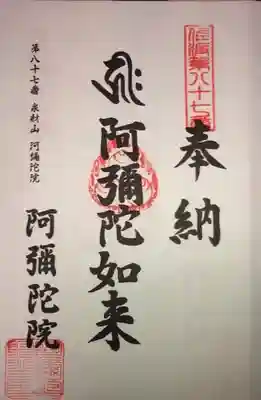 第八十七番
奉納
𑖮𑖿𑖨𑖱𑖾
阿彌陀如来
第八十七番 財山 阿彌陀院
阿彌陀院